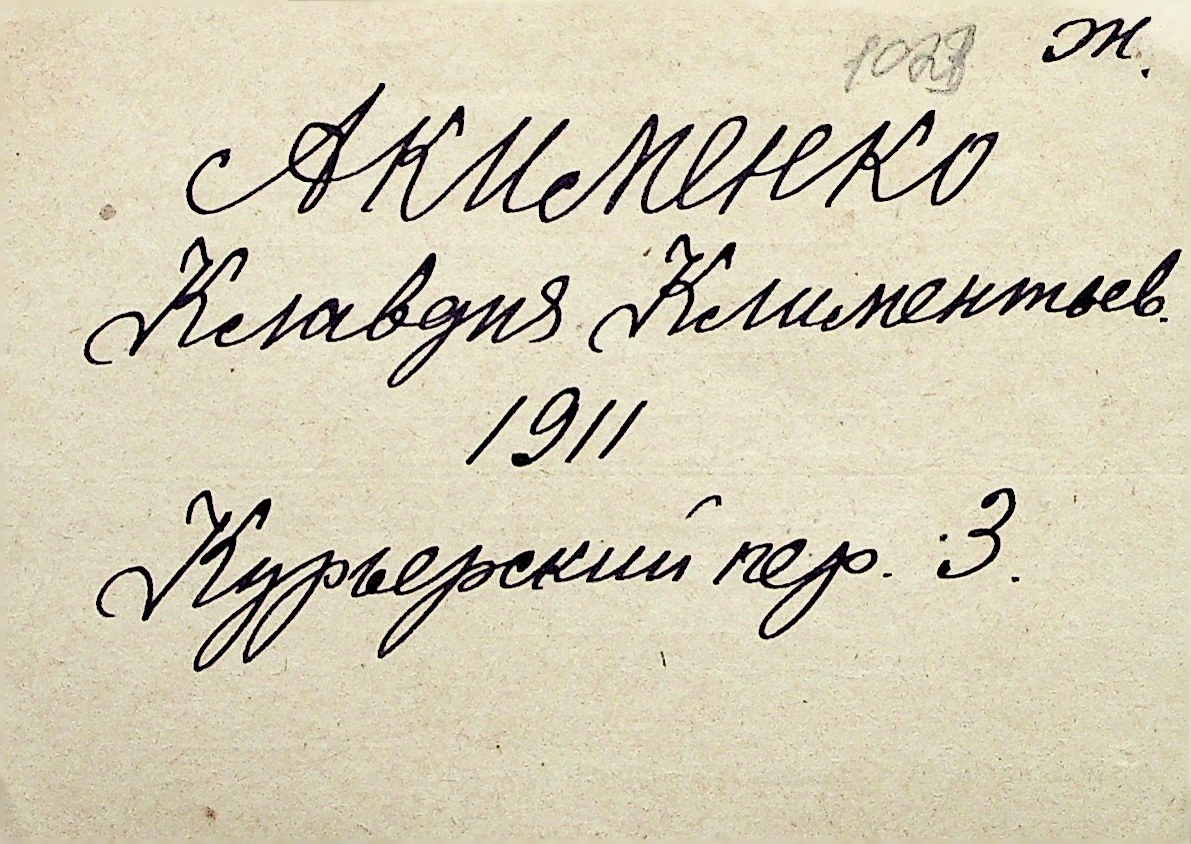 ж.
Акименко
Клавдия Климентьев.
1911
Курьерский пер. 3.